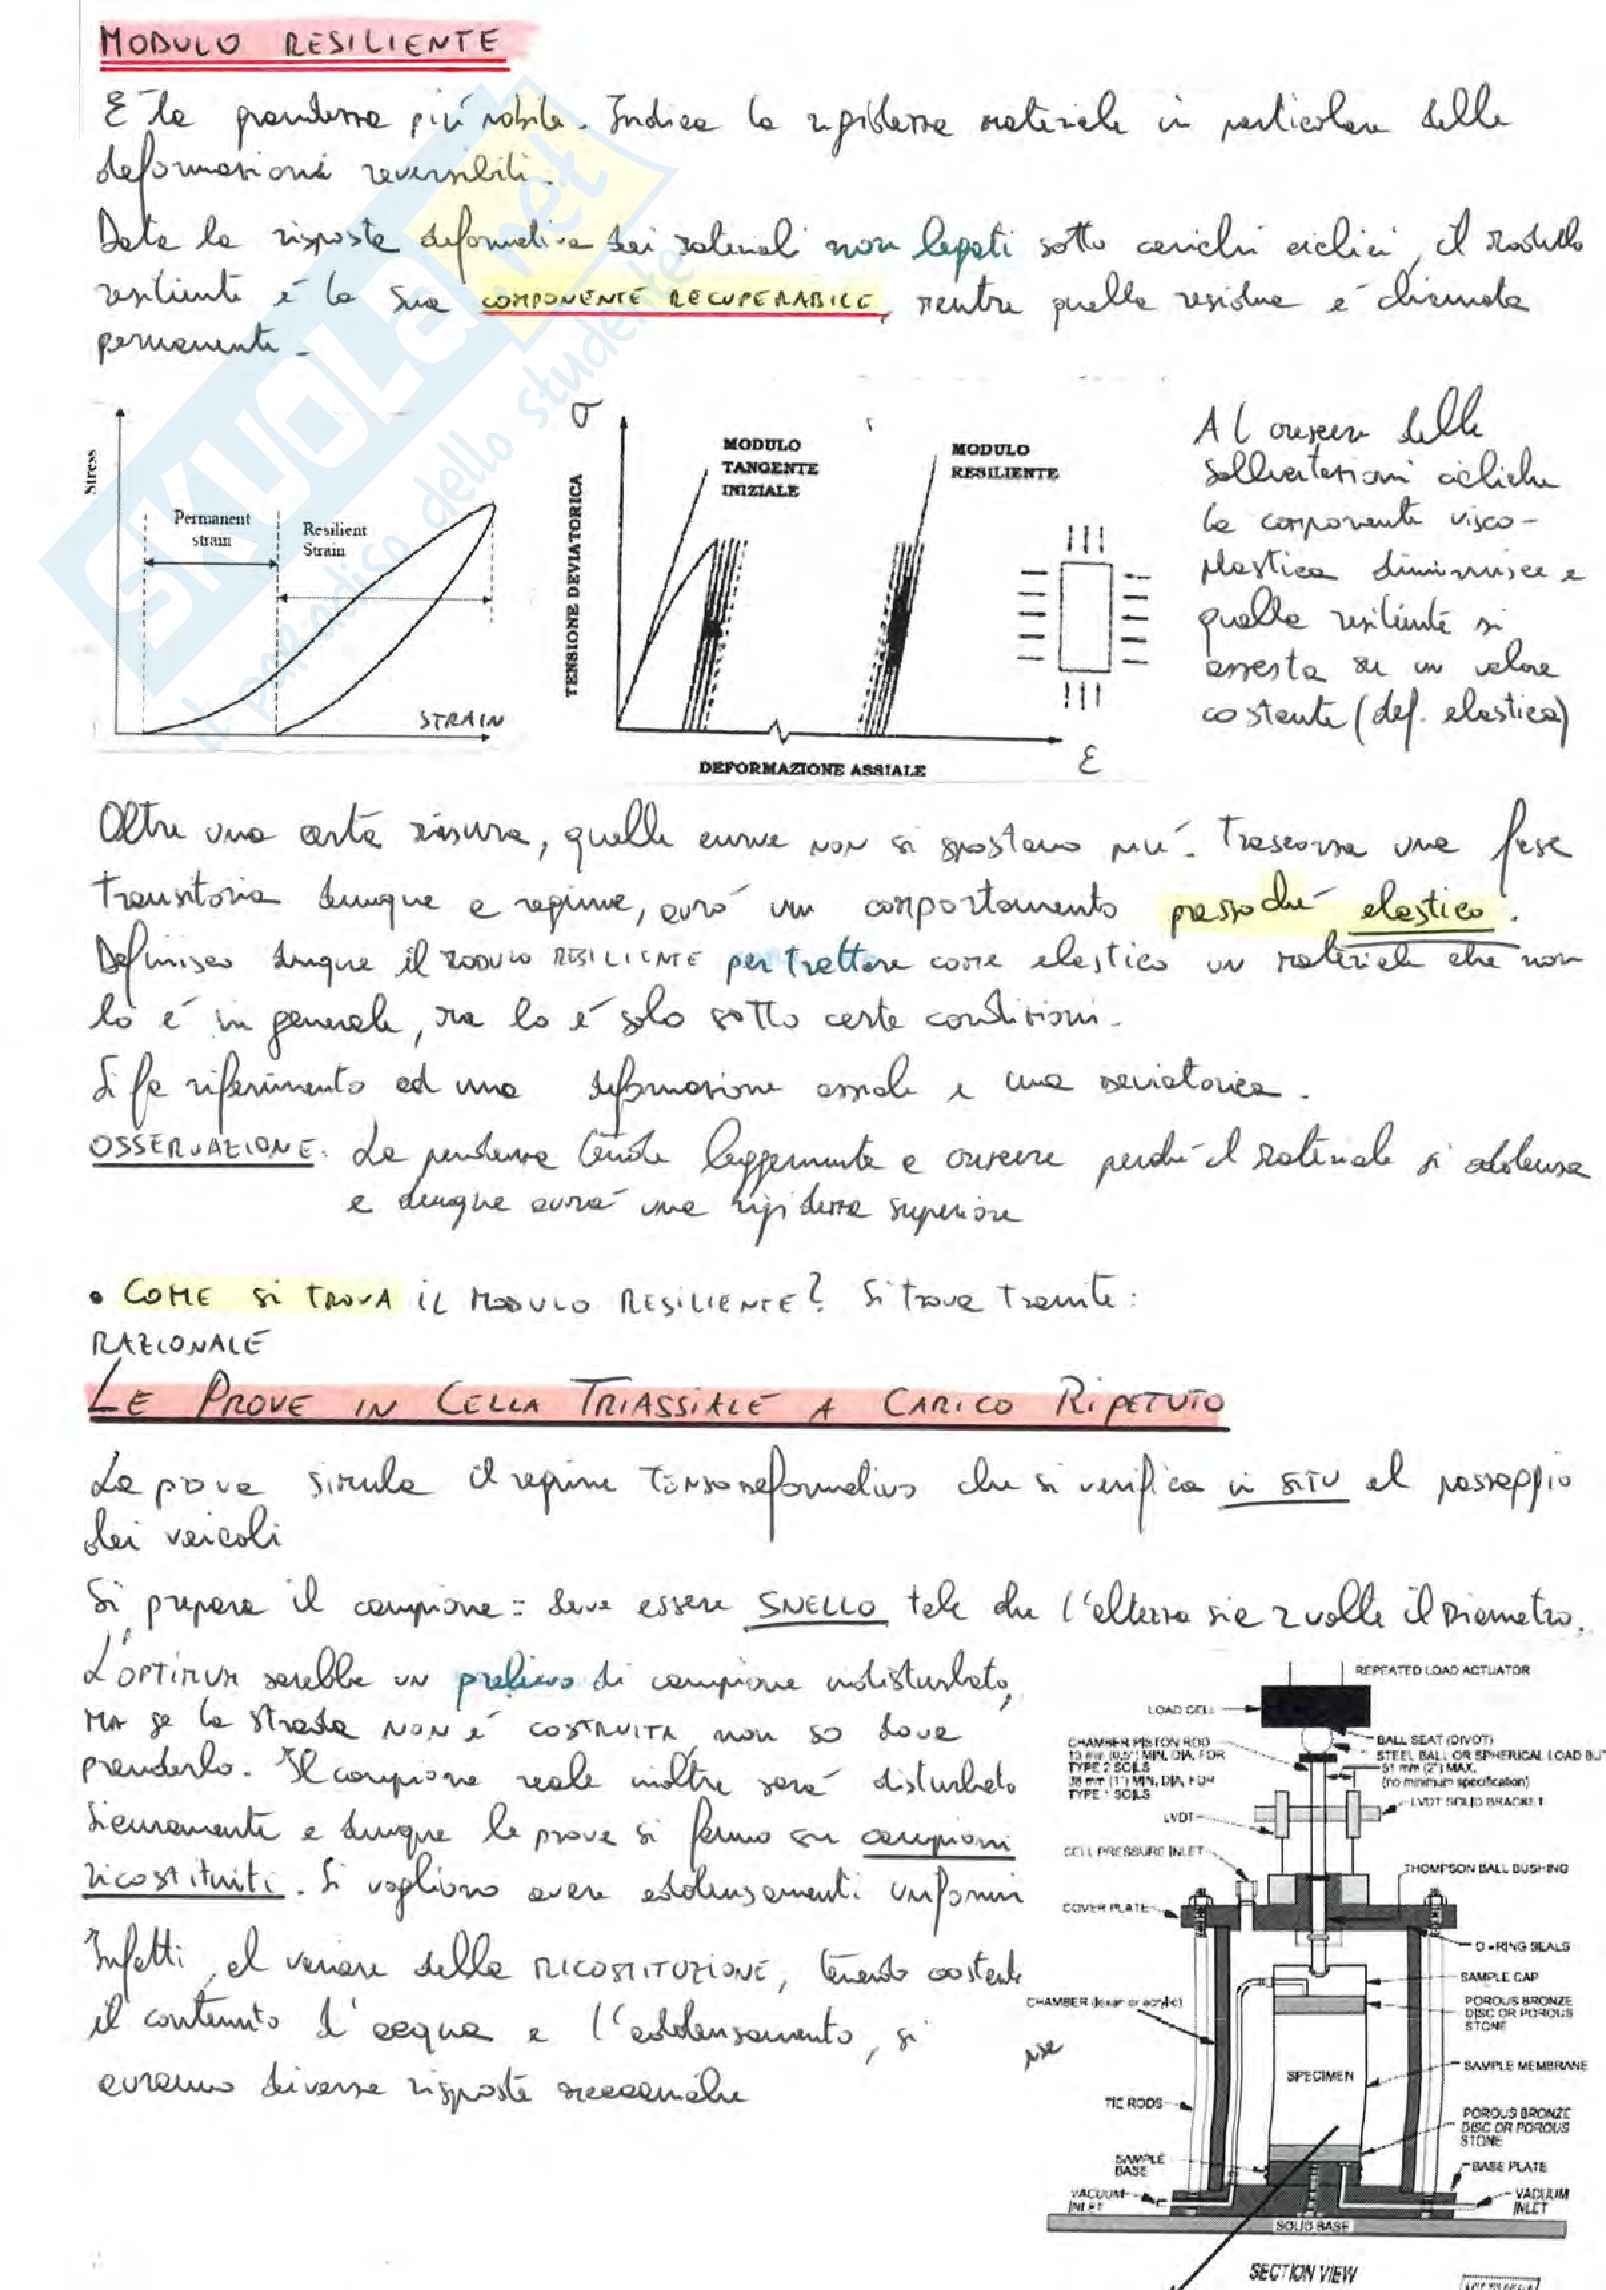 MODULO RESILIENTE
E' la grandezza più nobile. Indica la rigidezza materiale in particolare delle
deformazioni reversibili.
Data la risposta deformativa dei materiali non legati sotto carichi ciclici, il modulo
resiliente è la sua COMPONENTE RECUPERABILE, mentre quella residua è chiamata
permanente.
Stress
Permanent
strain
Resilient
Strain
STRAIN
σ
TENSIONE DEVIATORICA
MODULO
TANGENTE
INIZIALE
MODULO
RESILIENTE
DEFORMAZIONE ASSIALE
ε
Al crescere delle
sollecitazioni cicliche
la componente visco-
plastica diminuisce e
quella resiliente si
assesta su un valore
costante (def. elastica)
Oltre una certa misura, quelle curve non si spostano più. Trascorsa una fase
transitoria dunque a regime, avrò un comportamento pressoché elastico.
Definisco dunque il MODULO RESILIENTE per trattare come elastico un materiale che non
lo è in generale, ma lo è solo sotto certe condizioni.
Si fa riferimento ad una deformazione assiale e una deviatorica.
OSSERVAZIONE. La pendenza tende leggermente a crescere perché il materiale si addensa
e dunque avrà una rigidezza superiore
• COME SI TROVA IL MODULO RESILIENTE? Si trova tramite:
RAZIONALE
LE PROVE IN CELLA TRIASSIALE A CARICO RIPETUTO
La prova simula il regime tensodeformativo che si verifica in SITU al passaggio
dei veicoli
Si prepara il campione: deve essere SNELLO tale che l'altezza sia 2 volte il Diametro.
L'OPTIMUM sarebbe un prelievo di campione indisturbato,
MA se la strada NON è COSTRUITA, non so dove
prenderlo. Il campione reale inoltre sarà disturbato
sicuramente e dunque le prove si fanno su campioni
ricostituiti. Si vogliono avere addensamenti uniformi
Infatti, al variare della RICOSTITUZIONE, tenendo costante
il contenuto d'acqua e l'addensamento, si
avranno diverse risposte meccaniche
REPEATED LOAD ACTUATOR
LOAD CELL
BALL SEAT (DIVOT)
STEEL BALL OR SPHERICAL LOAD BUT
51 mm (2") MAX.
(no minimum specification)
CHAMBER PISTON ROD
13 mm (0.5") MIN. DIA. FOR
TYPE 2 SOILS
38 mm (1") MIN. DIA. FOR
TYPE 1 SOILS
LVDT SOLID BRACKET
LVDT
CELL PRESSURE INLET
THOMPSON BALL BUSHING
COVER PLATE
O-RING SEALS
SAMPLE CAP
CHAMBER (lexan or acrylic)
POROUS BRONZE
DISC OR POROUS
STONE
SPECIMEN
SAMPLE MEMBRANE
TIE RODS
POROUS BRONZE
DISC OR POROUS
STONE
SAMPLE
BASE
BASE PLATE
VACUUM
INLET
VACUUM
INLET
SOLID BASE
SECTION VIEW
SKUOLA.net
il paradiso dello studente